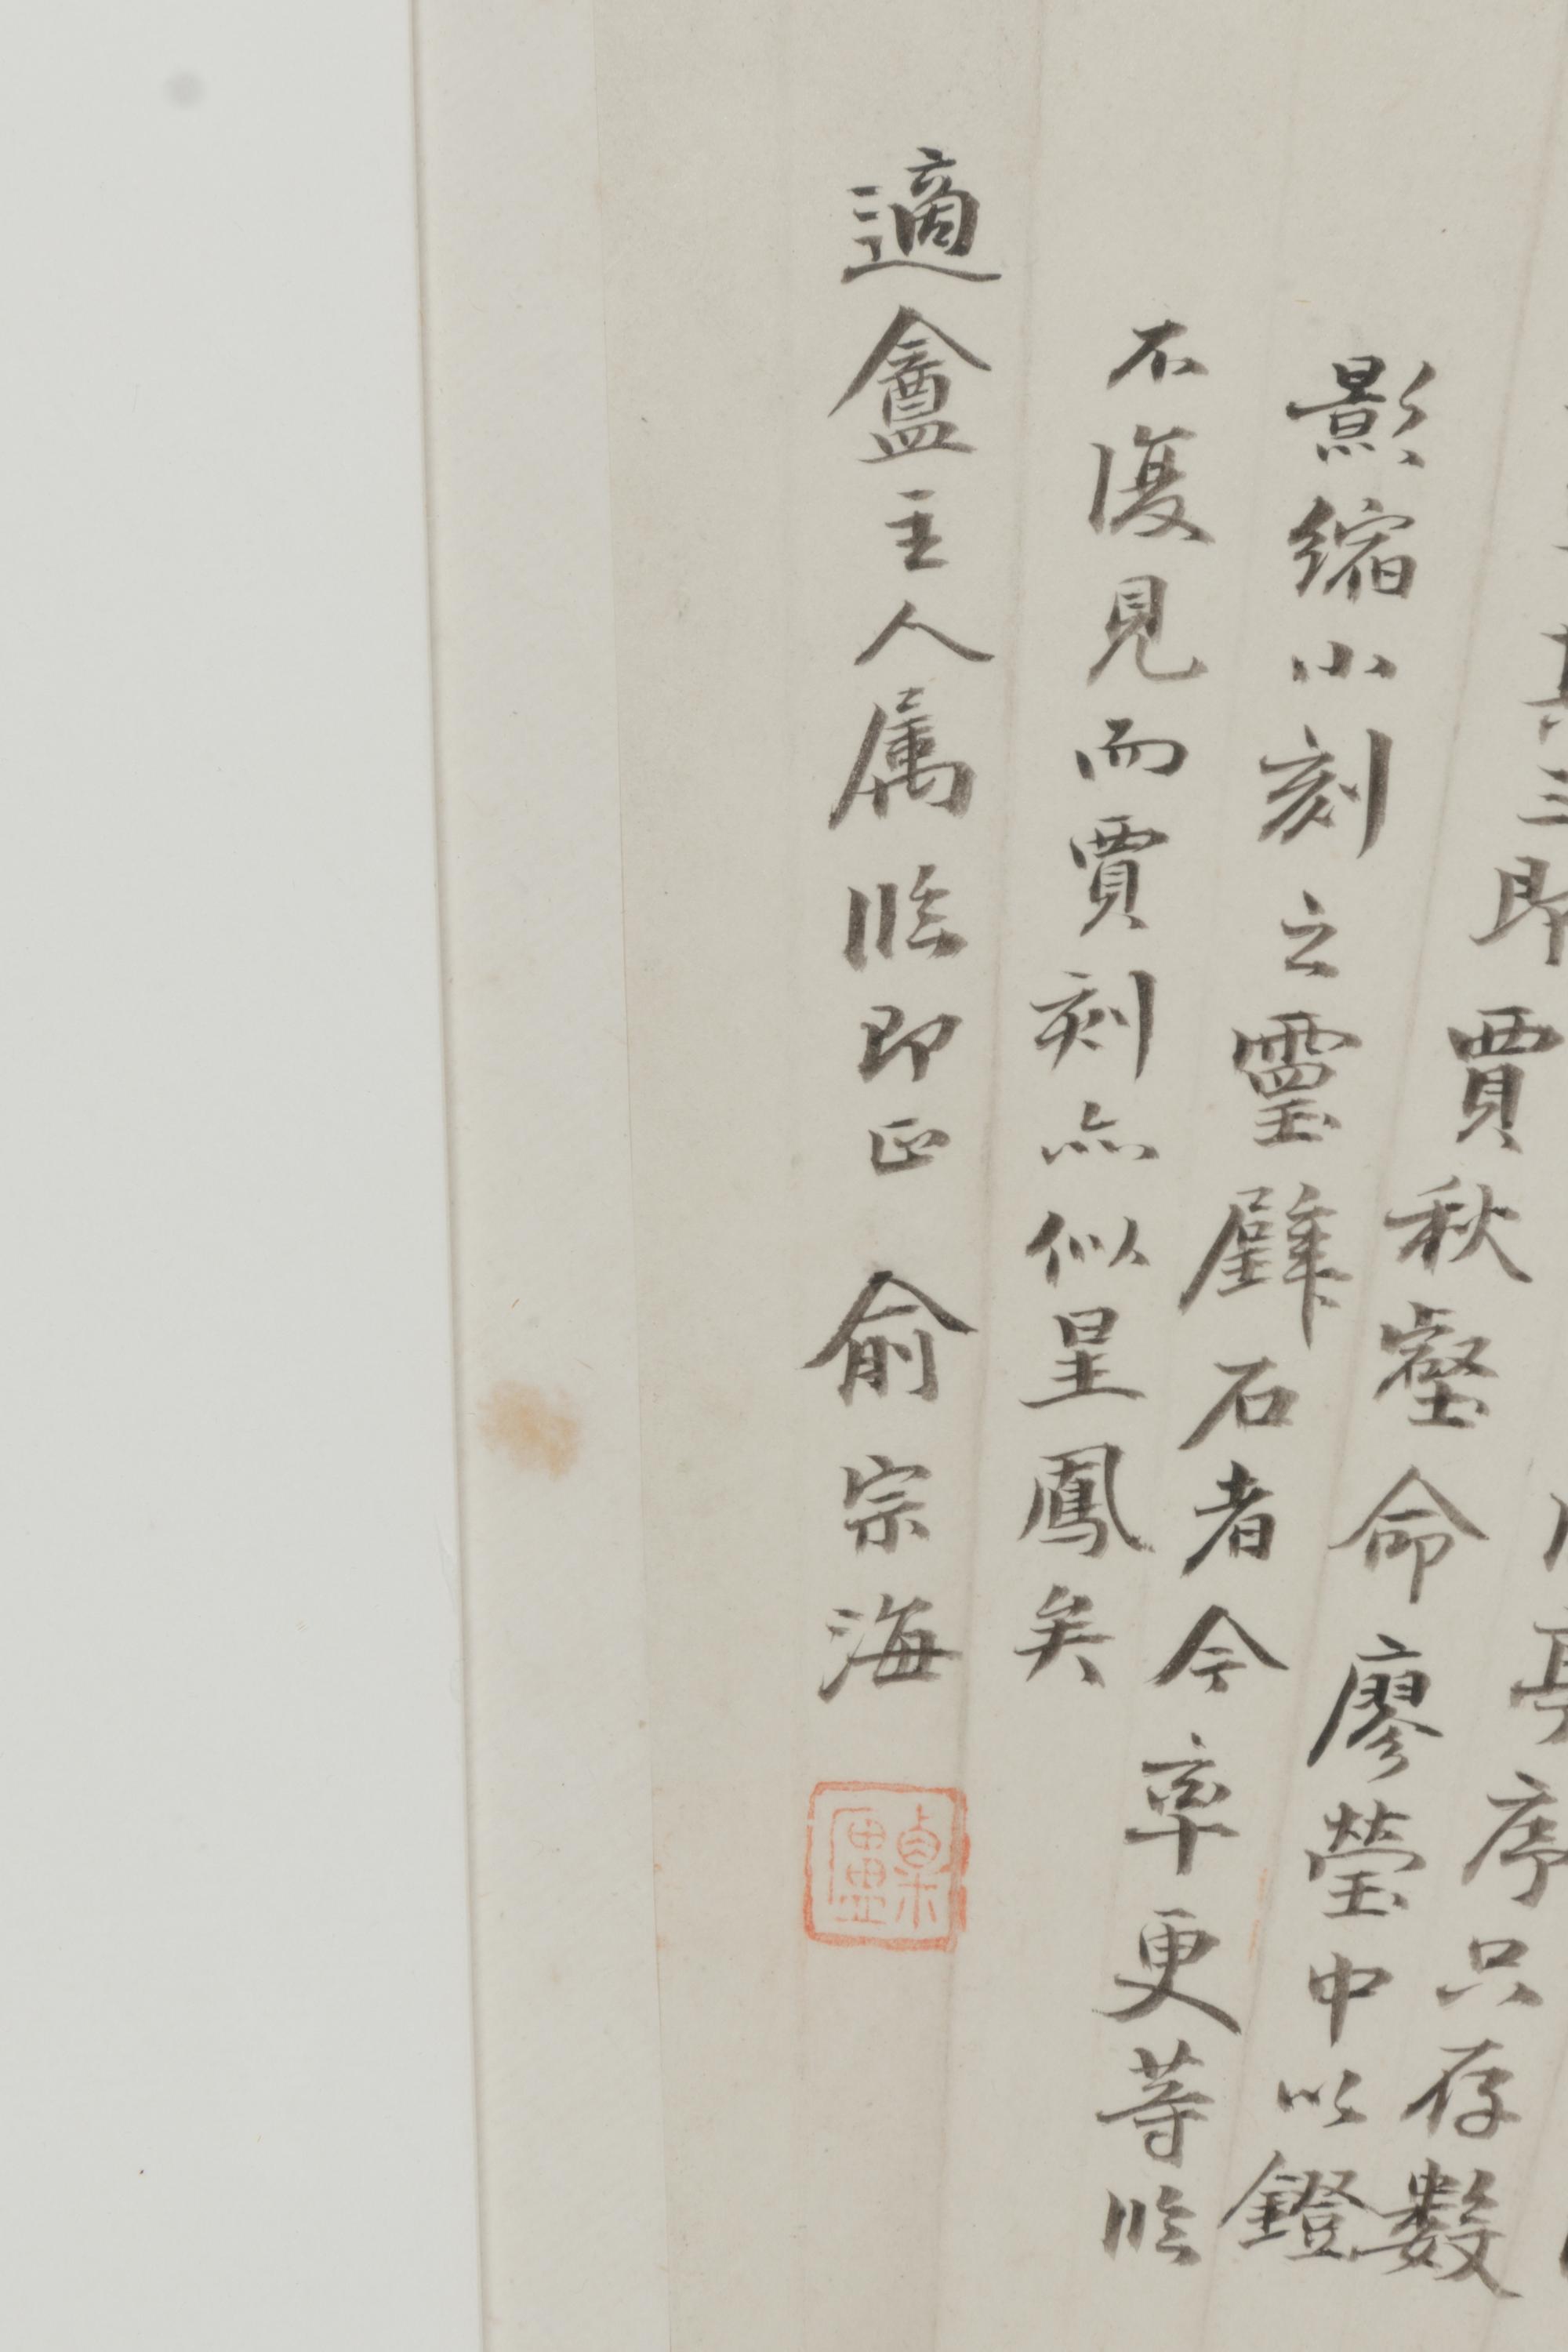 亭序只存数
其三即賈秋壑命廖瑩中以鐙
影縮小刻之靈璧石者今率更等臨
不復見而賈刻亦似星鳳矣
適盦主人属臨即正 俞宗海
粟廬